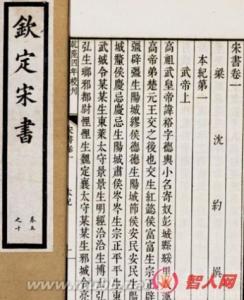 宋書卷一
梁 沈約 撰
本紀第一
武帝上
高祖武皇帝諱裕字德輿小名寄奴彭城縣綏
高帝弟楚元王交之後也交生紅懿侯富富生宗正辟
彊辟彊生陽城繆侯德德生陽城節侯安民安民生陽
城釐侯慶忌慶忌生陽城肅侯岑岑生宗正平平生東
武城令某某生東萊太守景景生明經洽洽生博士弘
弘生瑯邪都尉悝悝生魏定襄太守某某生邪城
乾隆四年校刊
宋書卷一
本紀
欽定宋書
卷五
之十
智人网